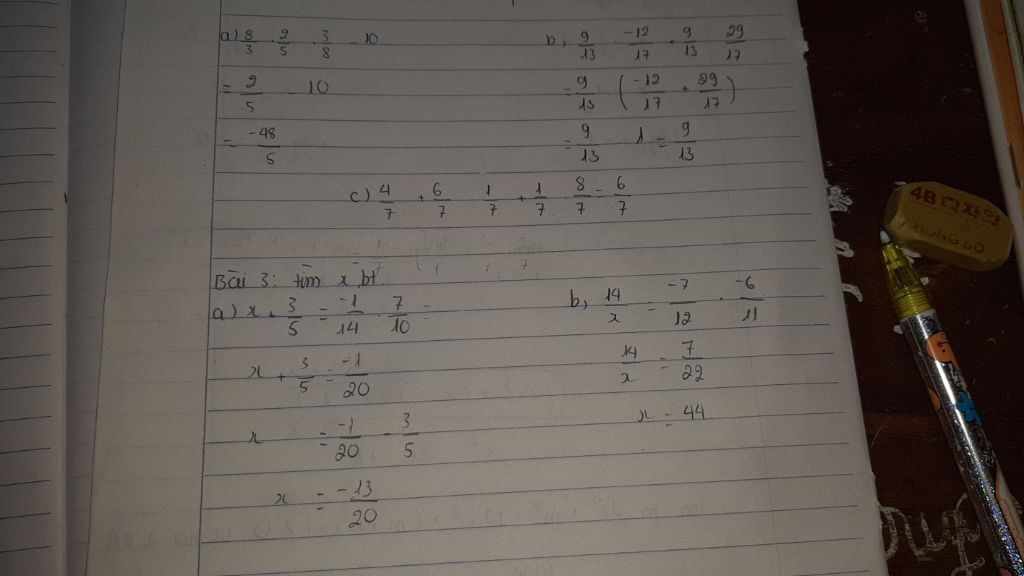 a) 8/3 . 2/5 . 3/8 - 10
= 2/5 - 10
= -48/5
b, 9/13 . -12/17 + 9/13 . 29/17
= 9/13 . (-12/17 + 29/17)
= 9/13 . 1 = 9/13
c) 4/7 + 6/7 . 1/7 + 1/7 . 8/7 = 6/7
Bài 3: tìm x, bt
a) x + 3/5 = -1/14 . 7/10 =
x + 3/5 = -1/20
x = -1/20 - 3/5
x = -13/20
b, 14/x = -7/12 . -6/11
14/x = 7/22
x = 44
4B